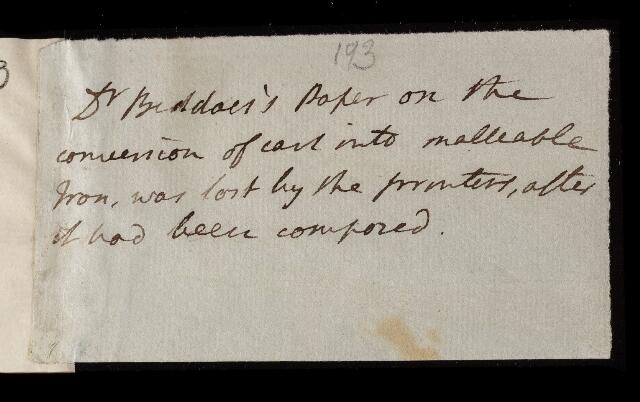 193
Dr Beddoes's Paper on the
conversion of cast into malleable
Iron, was lost by the printers, after
it had been composed.